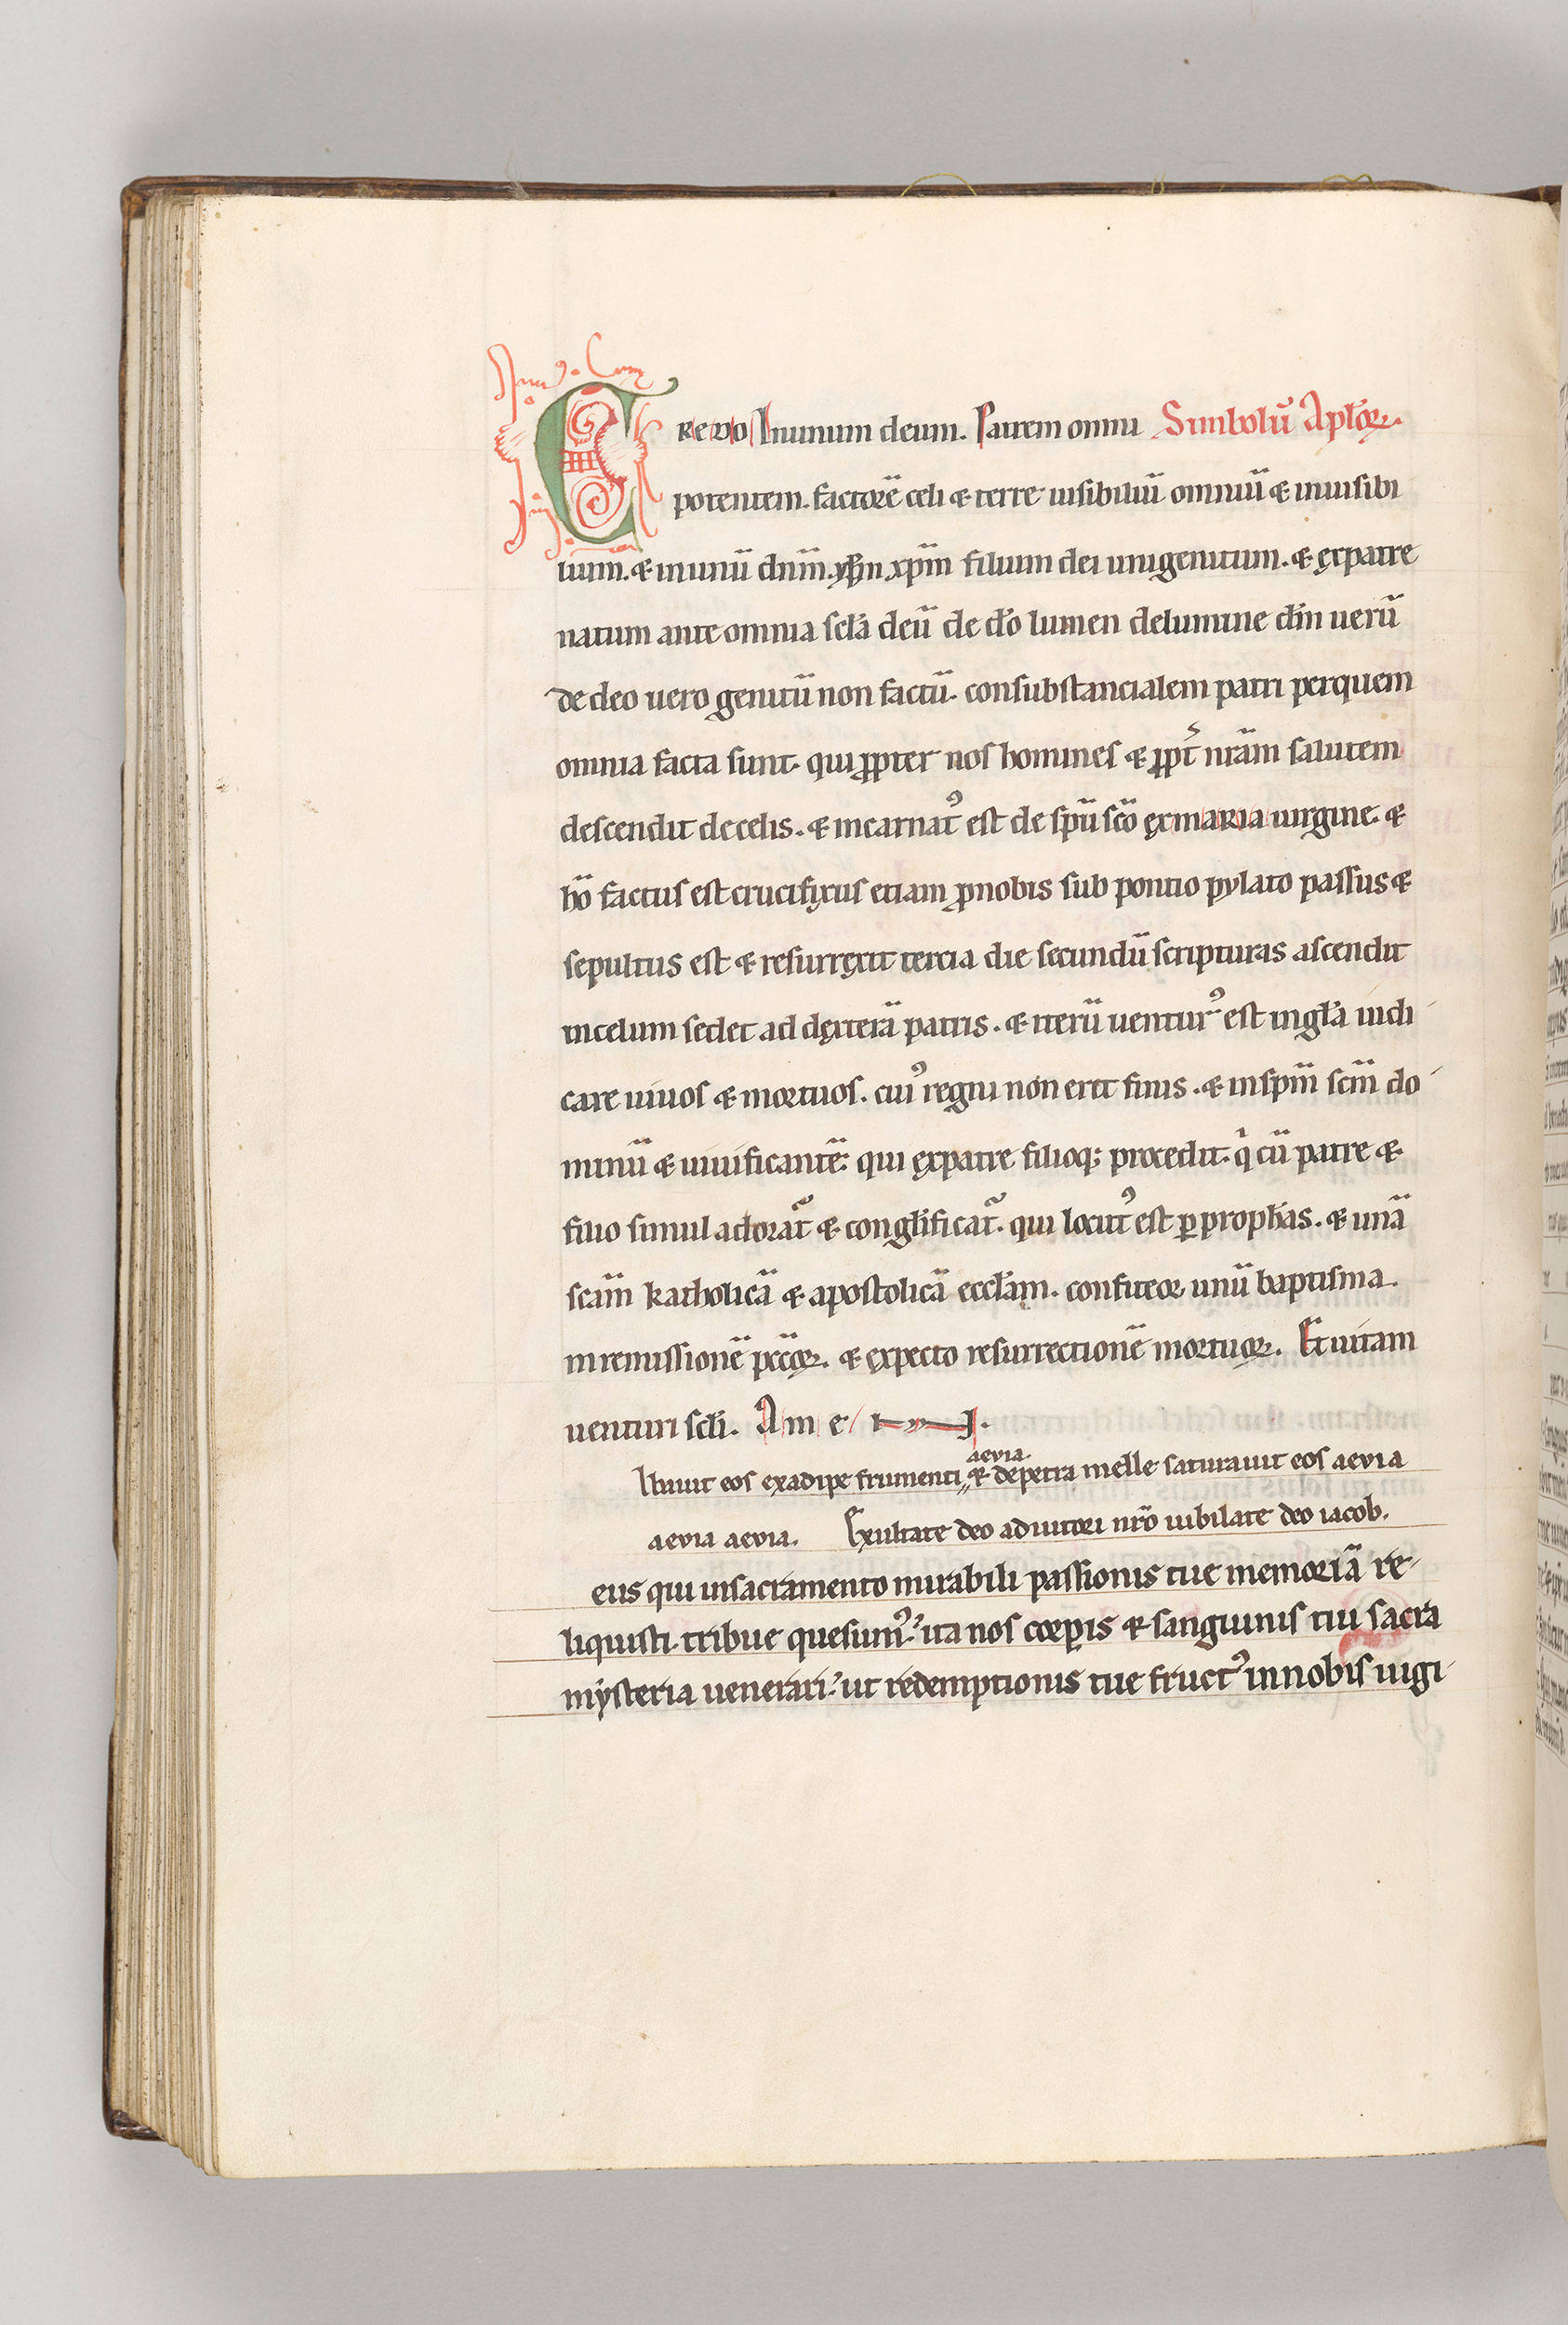 Credo In unum deum. Patrem omni Simbolū Apl̄oꝝ.
potentem. factorē celi & terre uisibiliū omniū & inuisibi
lium. & in unū dn̄m. yh̄m xp̄m filium dei unigenitum. & ex patre
natum ante omnia scl̄a deū de do̅ lumen de lumine dm̄ uerū
de deo uero genitū non factū. consubstancialem patri per quem
omnia facta sunt. qui ꝓpter nos homines & ꝓpt̄ nr̄am salutem
descendit de celis. & incarnatꝰ est de sp̄u sc̄o ex maria uirgine. &
hō factus est crucifixus etiam ꝓ nobis sub pontio pylato passus &
sepultus est & resurrexit tercia die secundū scripturas ascendit
in celum sedet ad dexterā patris. & iterū uenturꝰ est in gl̄a iudi
care uiuos & mortuos. cuiꝰ regni non erit finis. & in sp̄m sc̄m do
minū & uiuificantē. qui ex patre filioq; procedit. qⁱ cū patre &
filio simul adorat᷑ & congl̄ificat᷑. qui locutꝰ est ꝑ proph̄as. & unā
sc̄am katholicā & apostolicā eccl̄am. confiteor unū baptisma.
in remissionē pccōꝝ. & expecto resurrectionē mortuoꝝ. Et uitam
uenturi scl̄i. Amen.
aevia.
Ibauit eos ex adipe frumenti & de petra melle saturauit eos aevia
aevia aevia. Exultate deo adiutori nr̄o iubilate deo iacob.
eus qui in sacramento mirabili passionis tue memoriā re
liquisti. tribue quesumꝰ. ita nos corꝑis & sanguinis tui sacra
mysteria uenerari. ut redemptionis tue fructꝰ in nobis iugi